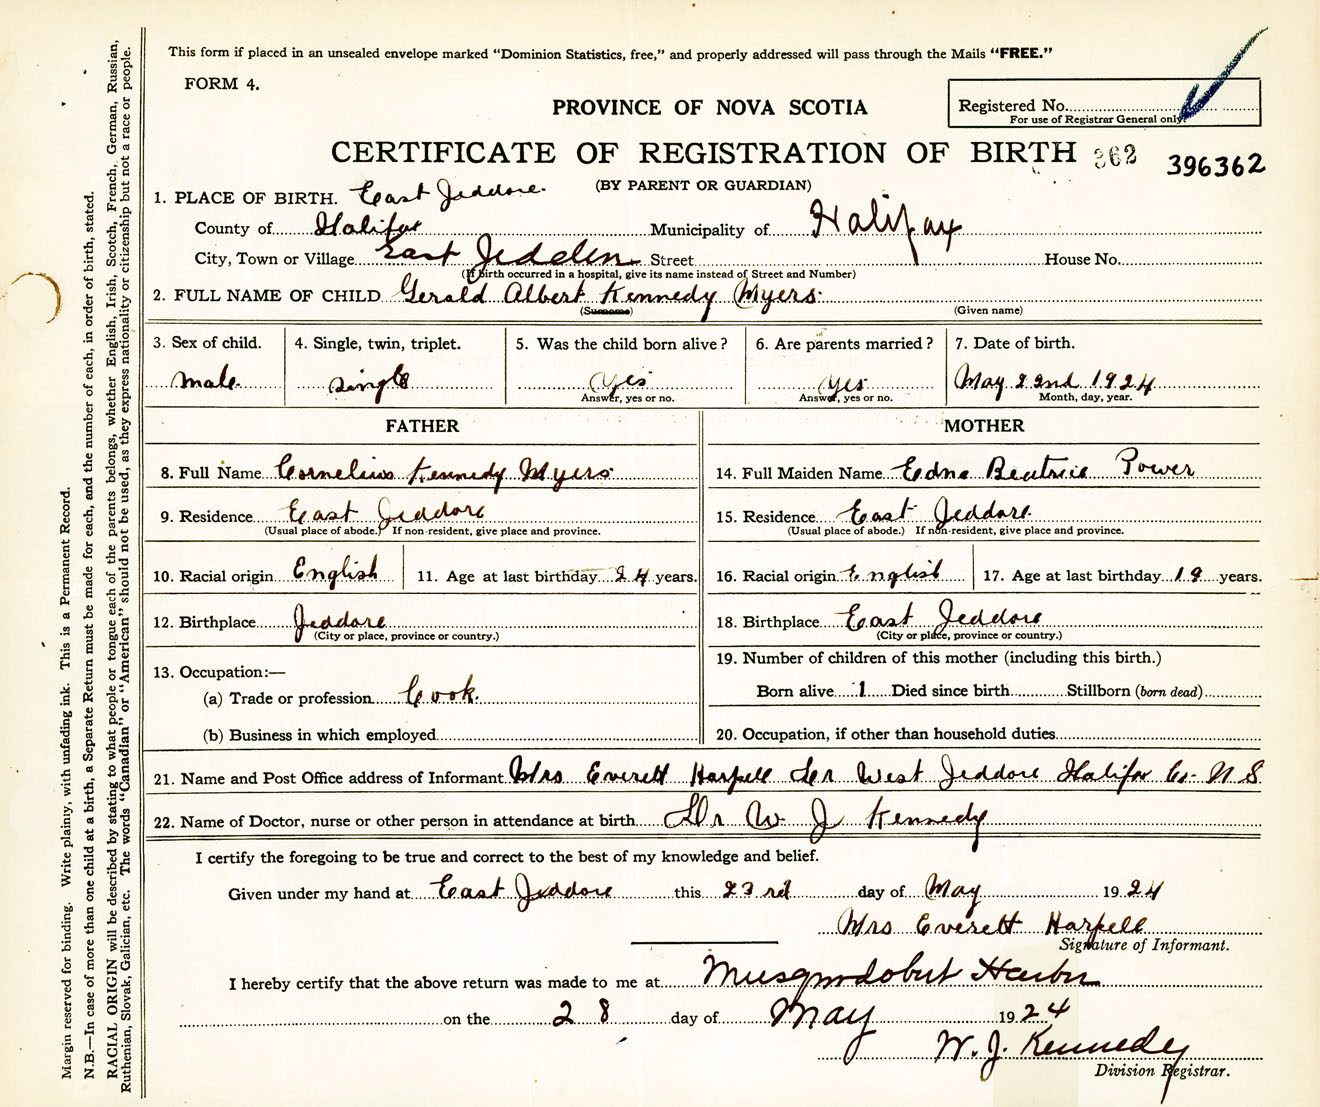 This form if placed in an unsealed envelope marked "Dominion Statistics, free," and properly addressed will pass through the Mails "FREE."
FORM 4.
PROVINCE OF NOVA SCOTIA
Registered No.
For use of Registrar General only.
CERTIFICATE OF REGISTRATION OF BIRTH 362 396362
(BY PARENT OR GUARDIAN)
1. PLACE OF BIRTH. East Jeddore.
County of Halifax Municipality of Halifax
City, Town or Village East Street House No.
(If birth occurred in a hospital, give its name instead of Street and Number)
2. FULL NAME OF CHILD Gerald Albert Kennedy Myers.
(Surname) (Given name)
3. Sex of child. 4. Single, twin, triplet. 5. Was the child born alive? 6. Are parents married? 7. Date of birth.
male. single yes yes May 22nd 1924
Answer, yes or no. Answer, yes or no. Month, day, year.
FATHER MOTHER
8. Full Name Cornelius Kennedy Myers. 14. Full Maiden Name Edna Beatrice Power
9. Residence East Jeddore 15. Residence East Jeddore
(Usual place of abode.) If non-resident, give place and province. (Usual place of abode.) If non-resident, give place and province.
10. Racial origin English 11. Age at last birthday 24 years. 16. Racial origin English 17. Age at last birthday 19 years.
12. Birthplace Jeddore 18. Birthplace East Jeddore
(City or place, province or country.) (City or place, province or country.)
13. Occupation:— 19. Number of children of this mother (including this birth.)
(a) Trade or profession Cook. Born alive 1 Died since birth Stillborn (born dead)
(b) Business in which employed 20. Occupation, if other than household duties
21. Name and Post Office address of Informant Mrs Everett Harpell West Jeddore Halifax Co. N.S
22. Name of Doctor, nurse or other person in attendance at birth Dr W J Kennedy
I certify the foregoing to be true and correct to the best of my knowledge and belief.
Given under my hand at East Jeddore this 23rd day of May 1924
Mrs Everett Harpell
Signature of Informant.
I hereby certify that the above return was made to me at Musquodoboit Harbor
on the 28 day of May 1924
W. J. Kennedy
Division Registrar.
Margin reserved for binding. Write plainly, with unfading ink. This is a Permanent Record.
N.B.—In case of more than one child at a birth, a Separate Return must be made for each, and the number of each, in order of birth, stated.
RACIAL ORIGIN will be described by stating to what people or tongue each of the parents belongs, whether English, Irish, Scotch, French, German, Russian,
Ruthenian, Slovak, Galician, etc. The words "Canadian" or "American" should not be used, as they express nationality or citizenship but not a race or people.